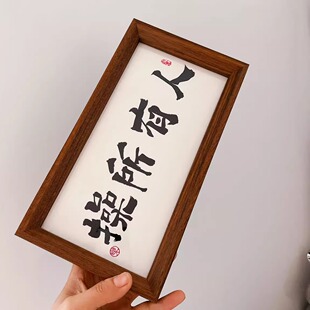 操所有人